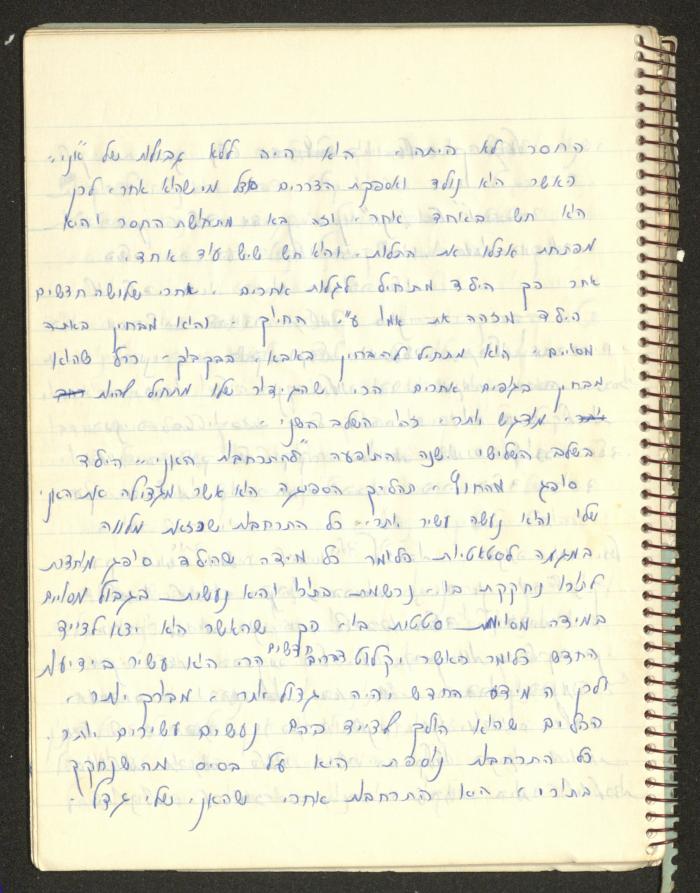 החסר לא היתה. הוא היה ללא גבולות של "אני".
כאשר הוא נולד ואספקת הצרכים אצל מישהו אחר לכן
הוא חש באיחוד אחר. וזה בא מתחושת החסר והוא
מפתחת אצלו את התלות. והוא חש שיש עוד אחד.
אחר כך הילד מתחיל לגלות אחרים. אחרי שלושה חדשים
הילד מזהה את אמו ע"י החיוך. והוא מבחין באתה
מסויים. הוא מתחיל להבחין באבא, בבקבוק. וברגע שהוא
מבחין בגופים אחרים הרי שהגידור שלו מתחיל להיות
מודגש יותר. זהו השלב השני.
השלב השלישי ישנה התופעה "להתרחבות האני". הילד
סופג מהחוץ. תהליך הספיגה הוא אשר מגדילה את האני
שלו והוא נעשה עשיר יותר. כל התרחבות שכזאת מלווה
במגמה לסטטיות כלומר כל מידה שהילד סופג מוצרת
לתוכו נחקקת בו. נרשמת בתוכו והיא נעשית בגבול מסויים
במידה מסויימת סטטית בו. כך שהאשר הוא יוצא לצייד
החדש כלומר כאשר יקלוט דברים חדשים הרי הוא עשיר בידיעות
ולכן המידע החדש יהיה גדול יותר, מבורך יותר.
הכלים שהוא הולך לצייד בהם נעשים עשירים יותר.
כל התרחבות נוספת היא על בסיס מה שנחקק
בתוכו. היא התרחבות אחרי שהאני שלי גדל.